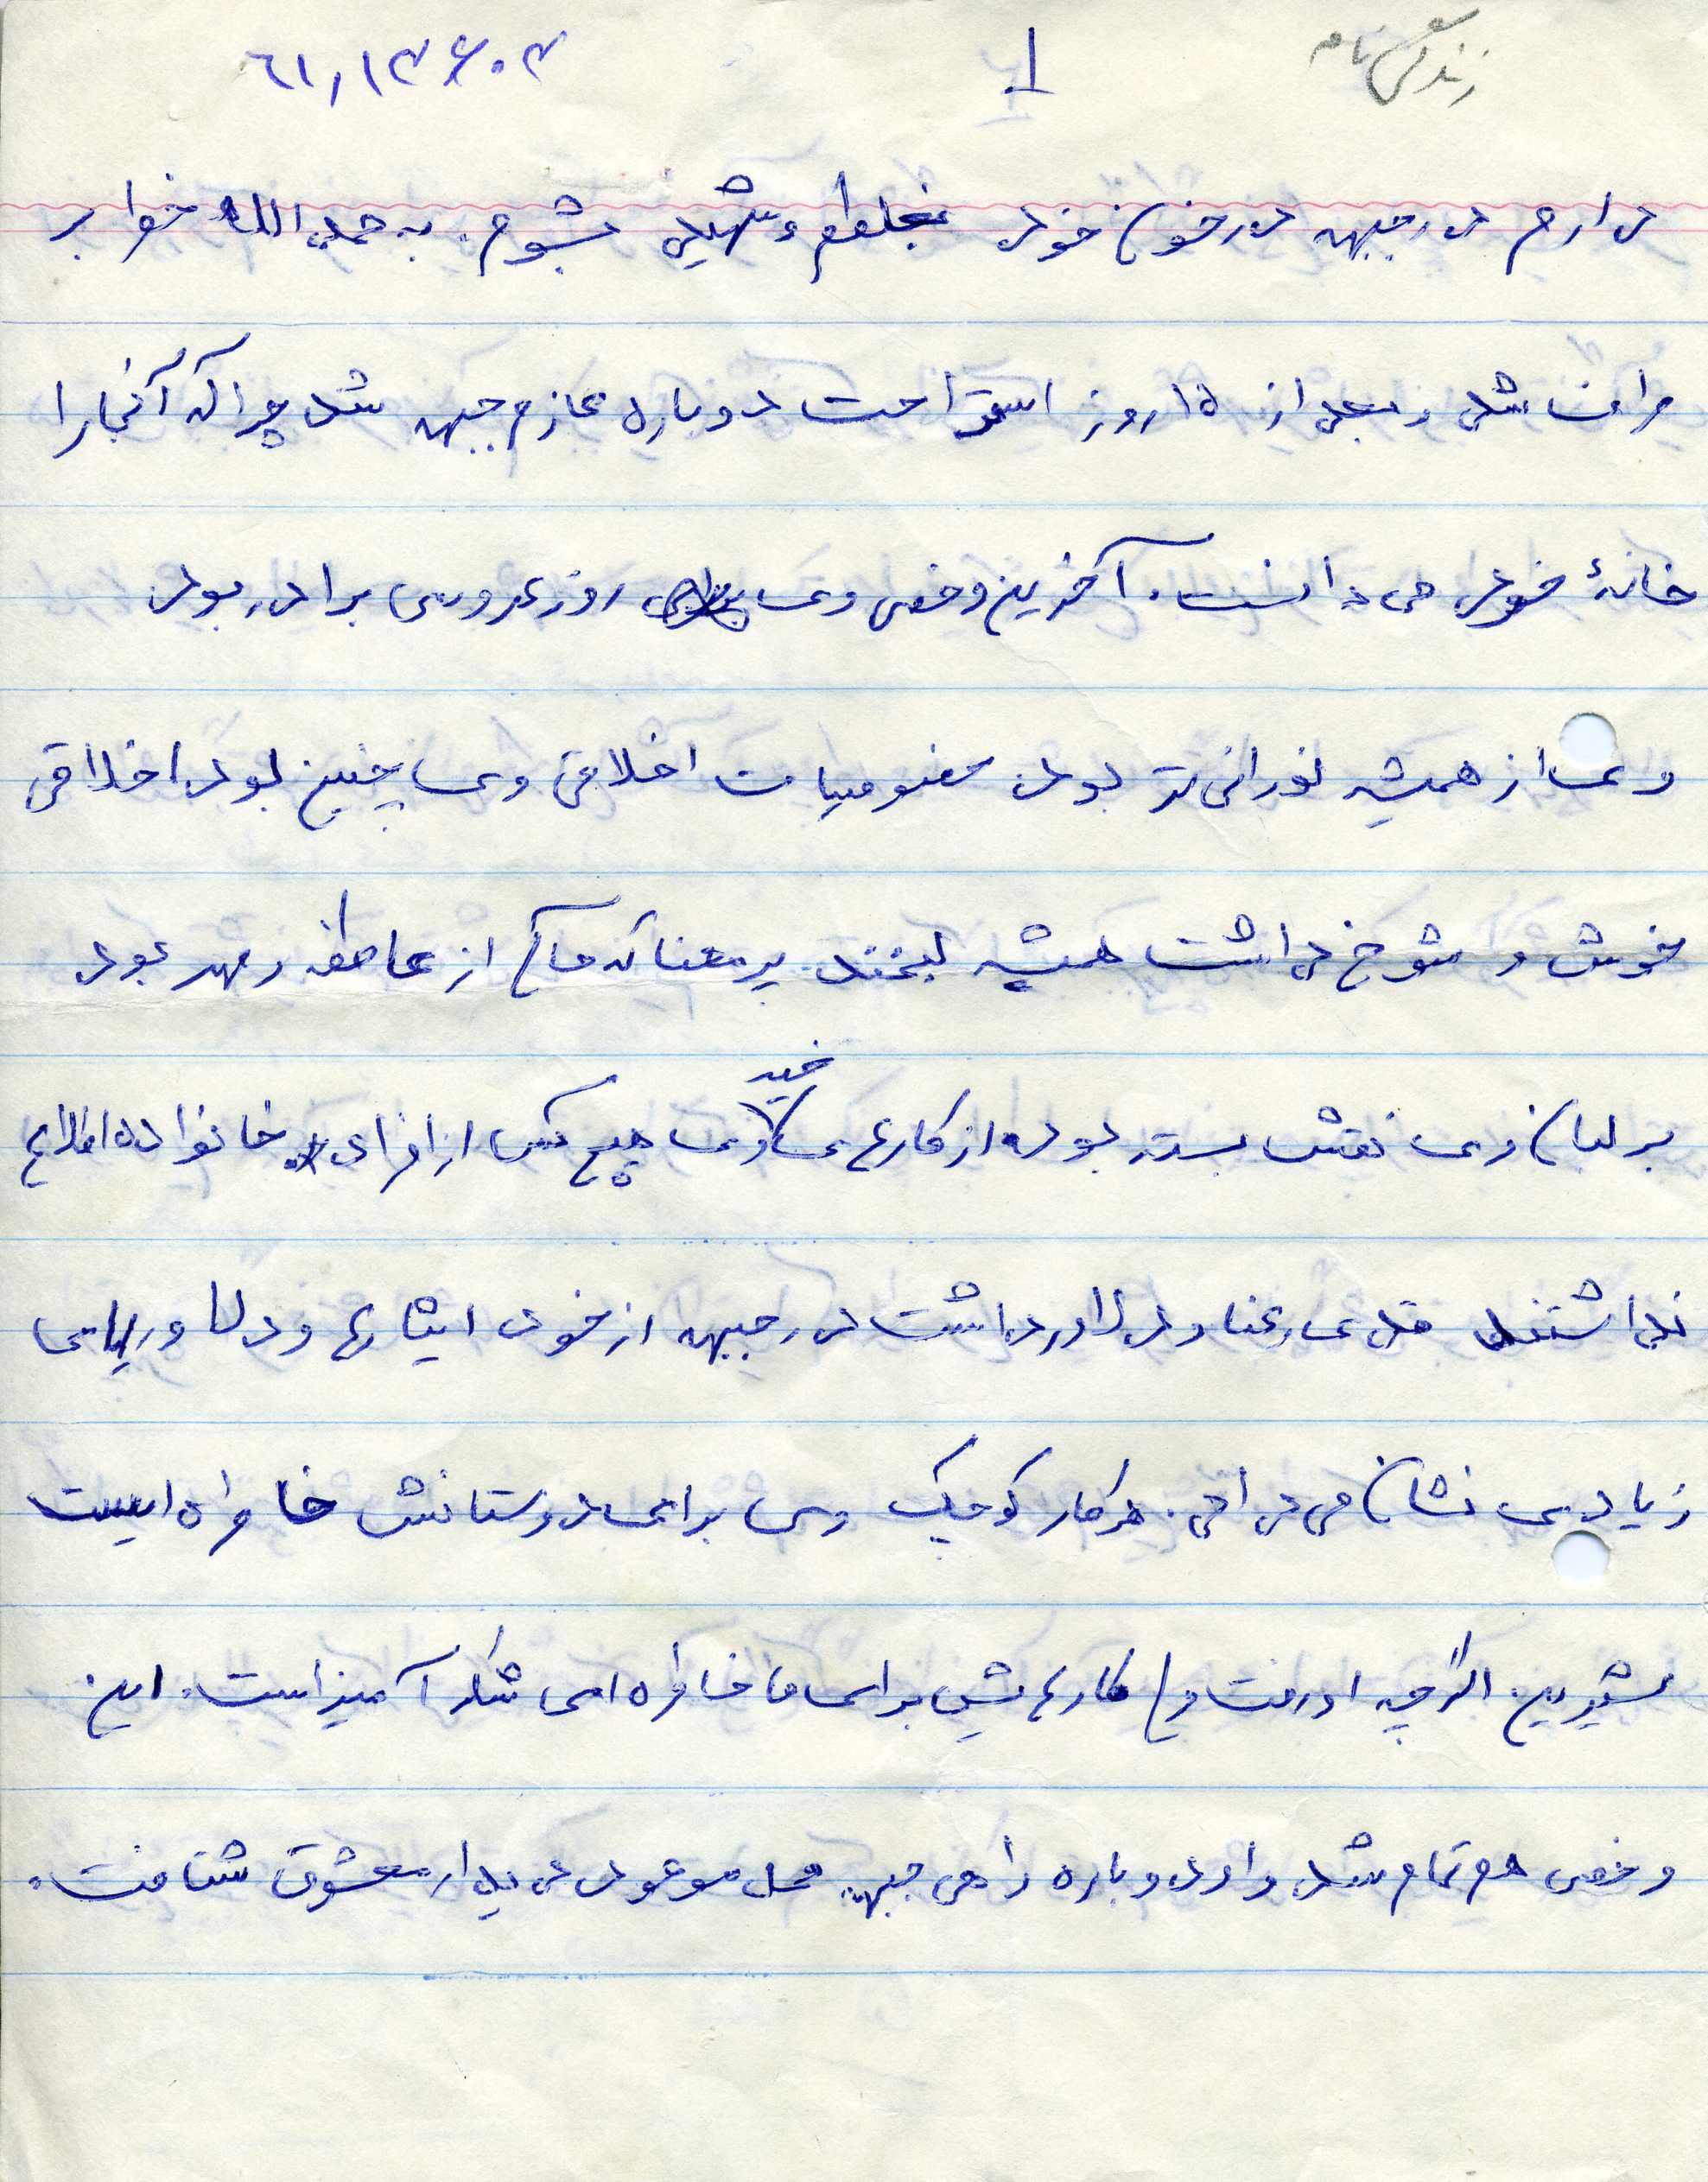 زندگی نامه
1
٦١٫١٣۶٠٣
دارم در جبهه در خون خود بغلطم و شهید بشوم. به حمدالله خواب بر
مراف شد و بعد از ۱۵ روز استراحت دوباره عازم جبهه شد چرا که آنجا را
خانهٔ خود می دانست. آخرین مرخصی وی روز عروسی برادر بود
وی از همیشه نورانی تر بود. خصوصیات اخلاقی وی چنین بود. اخلاقی
خوش و شوخ داشت همیشه لبخند پر معنا که حاکی از عاطفه و مهر بود
بر لبان وی نقش بسته بود. از کارهای خیر وی هیچ کس از افراد خانواده اطلاع
نداشتند قدی رعنا و دلاور داشت در جبهه از خود ایثارها و دلاوریهای
زیادی نشان می داد. هر کار کوچک وی برای دوستانش خاطره ایست
شیرین. اگر چه او رفت ولی کارهایش برای ما خاطره ای است. این
مرخصی هم تمام شد و او دوباره راهی جبهه محل موعود دیدار معشوق شتافت.